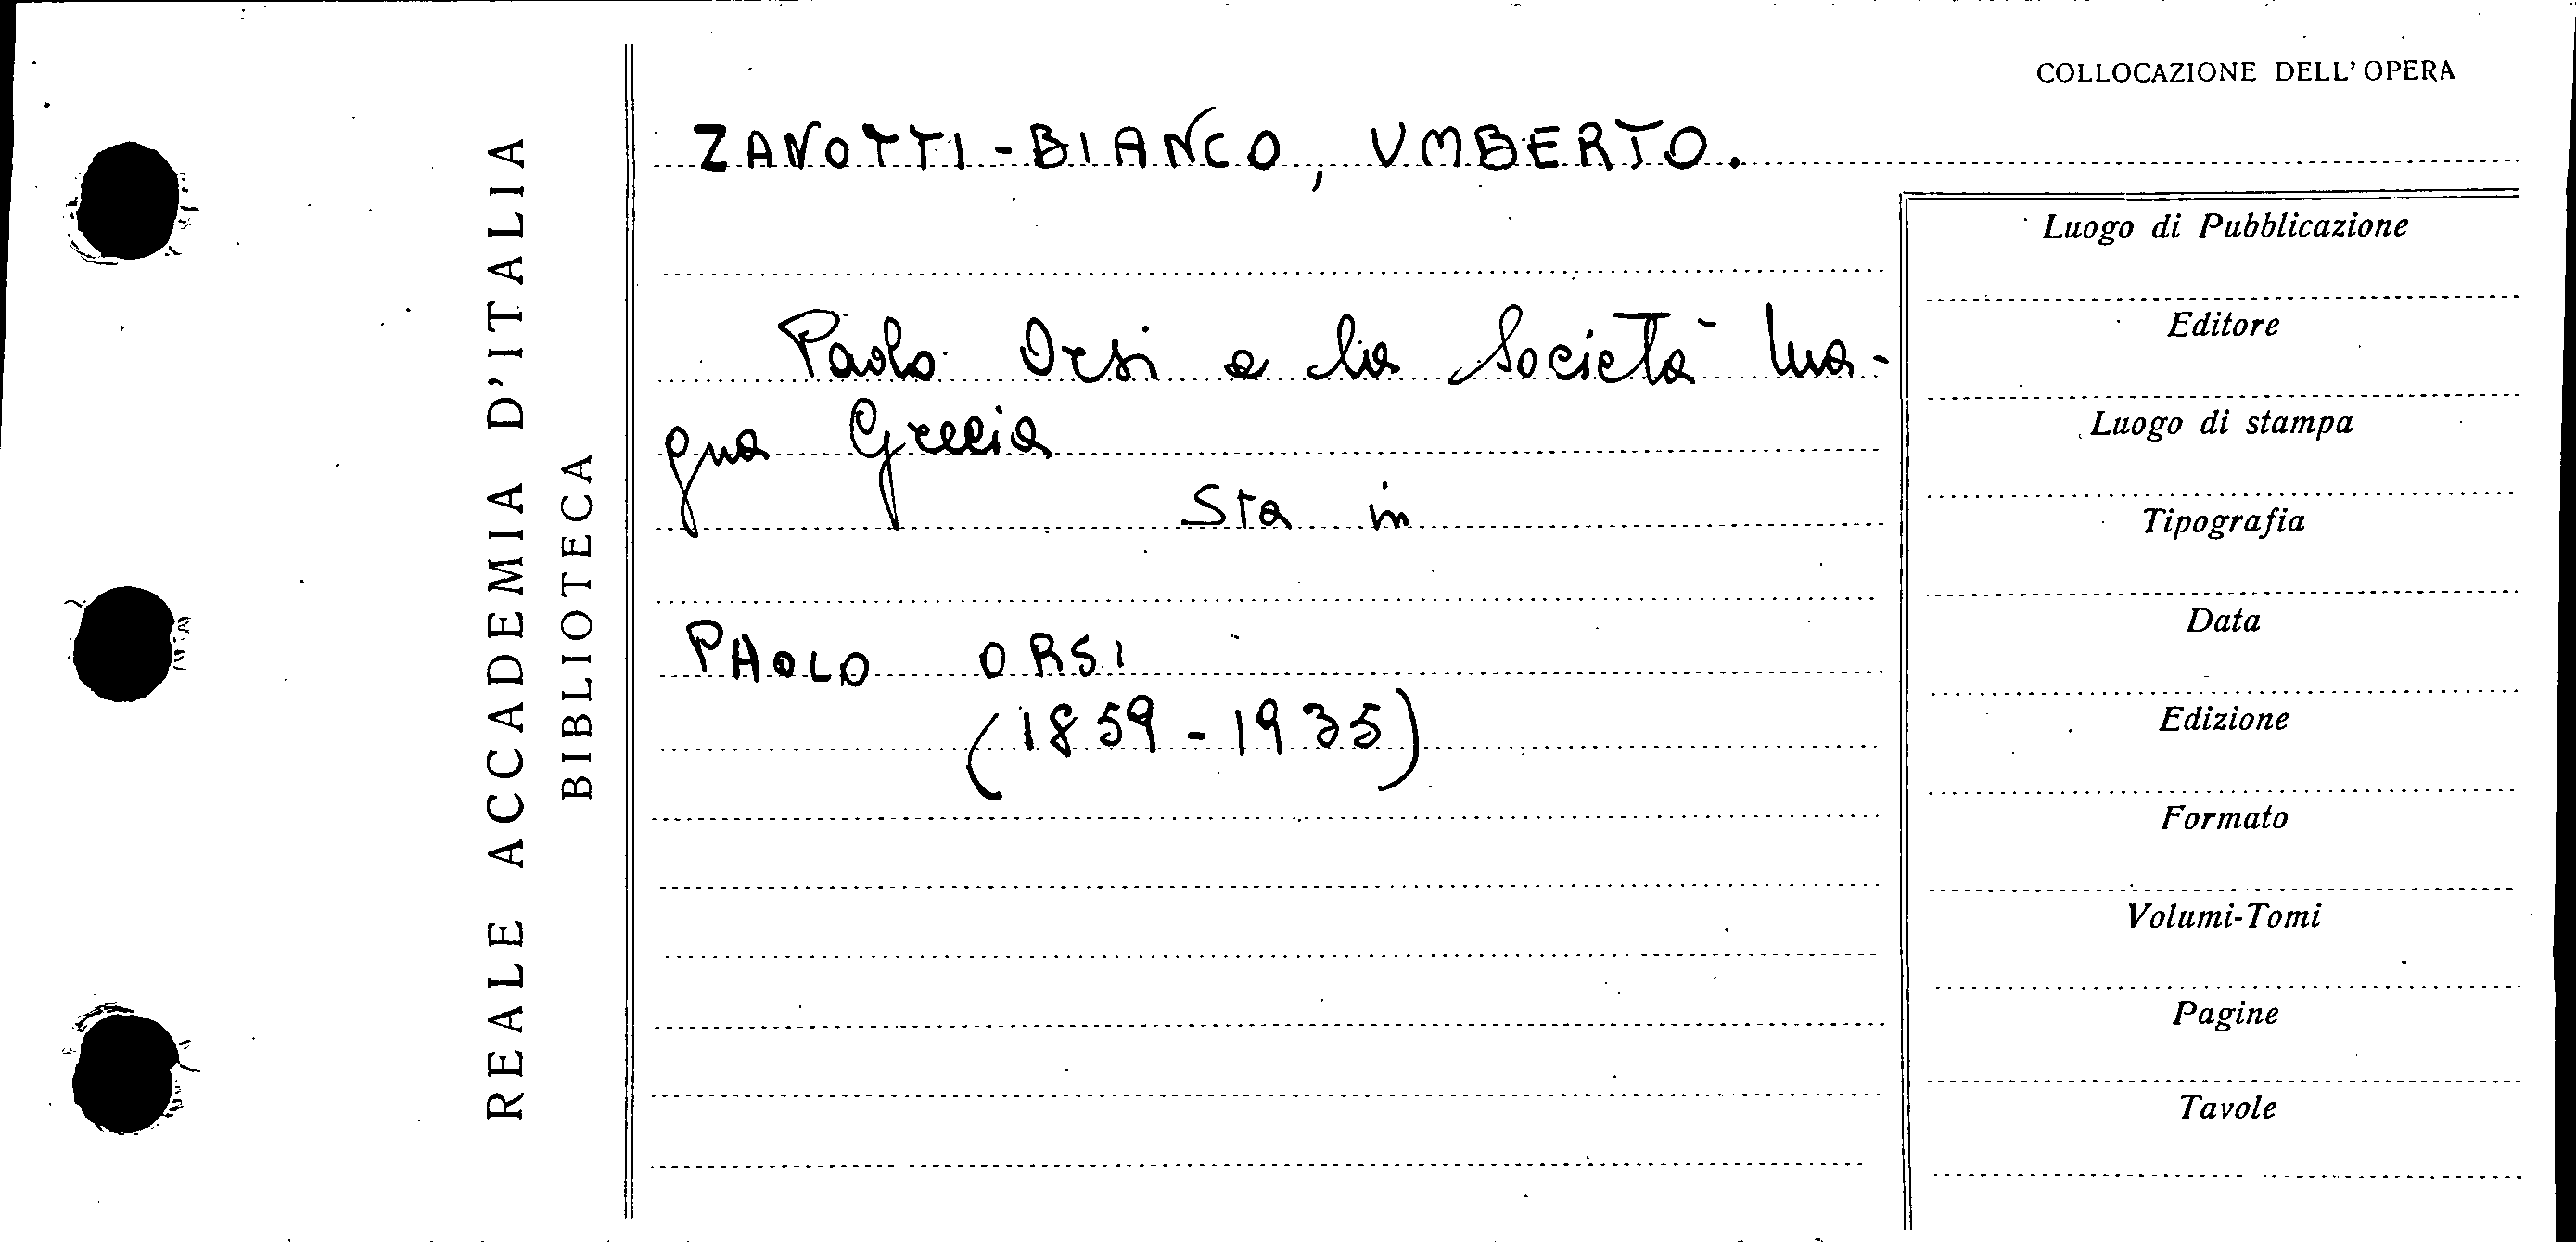 COLLOCAZIONE DELL'OPERA
REALE ACCADEMIA D'ITALIA
BIBLIOTECA
ZANOTTI-BIANCO, UMBERTO.
Paolo Orsi e la Società Ma-
gna Grecia
Sta in
PAOLO ORSI
(1859-1935)
Luogo di Pubblicazione
Editore
Luogo di stampa
Tipografia
Data
Edizione
Formato
Volumi-Tomi
Pagine
Tavole